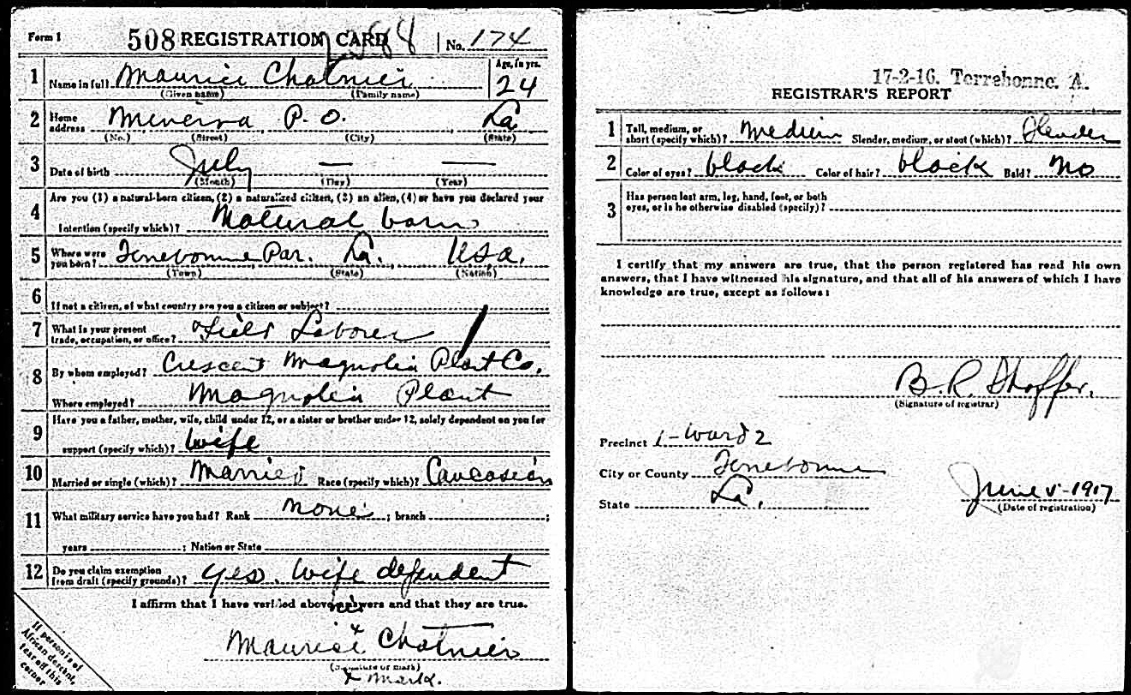 Form 1 508 REGISTRATION CARD No. 174
1 Name in full Maurice Chatnier Age, in yrs. 24
(Given name) (Family name)
2 Home address Minerva P. O. La
(No.) (Street) (City) (State)
3 Date of birth July — —
(Month) (Day) (Year)
4 Are you (1) a natural-born citizen, (2) a naturalized citizen, (3) an alien, (4) or have you declared your
intention (specify which)? Natural born
5 Where were you born? Terrebonne Par. La. U.S.A.
(Town) (State) (Nation)
6 If not a citizen, of what country are you a citizen or subject?
7 What is your present trade, occupation, or office? Field Laborer
8 By whom employed? Crescent Magnolia Plant Co.
Where employed? Magnolia Plant
9 Have you a father, mother, wife, child under 12, or a sister or brother under 12, solely dependent on you for
support (specify which)? Wife
10 Married or single (which)? Married Race (specify which)? Caucasian
11 What military service have you had? Rank None ; branch ;
years ; Nation or State
12 Do you claim exemption from draft (specify grounds)? Yes. Wife dependent
I affirm that I have verified above answers and that they are true.
his
Maurice x Chatnier
(Signature or mark)
x mark.
If person is of
African descent,
tear off this
corner
17-2-16. Terrebonne. A.
REGISTRAR'S REPORT
1 Tall, medium, or short (specify which)? Medium Slender, medium, or stout (which)? Slender
2 Color of eyes? black Color of hair? black Bald? No
3 Has person lost arm, leg, hand, foot, or both
eyes, or is he otherwise disabled (specify)?
I certify that my answers are true, that the person registered has read his own
answers, that I have witnessed his signature, and that all of his answers of which I have
knowledge are true, except as follows:
B. R. Shaffer.
(Signature of registrar)
Precinct 1-Ward 2
City or County Terrebonne
State La.
June 5-1917
(Date of registration)